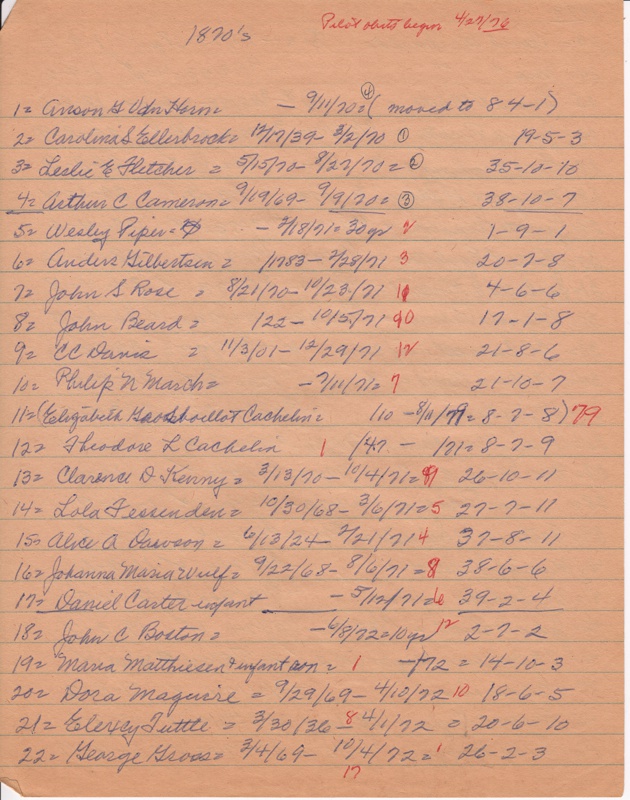 1870's
Pilot obits began 4/27/76
1= Anson G Van Horn= - 9/11/70= ④ ( moved to 84-1)
2= Carolina S Ellerbrock= 12/17/39- 3/2/70 ① 19-5-3
3= Leslie E Fletcher = 5/15/70- 8/27/70= ② 35-10-10
4= Arthur C Cameron= 9/19/69- 9/9/70= ③ 38-10-7
5= Wesley Piper= - 2/18/71= 30yr 2 1-9-1
6= Anders Gilbertsen= /1783- 2/28/71 3 20-7-8
7= John S Rose = 8/21/70- 10/23/71 11 4-6-6
8= John Beard = 122- 10/5/71 10 17-1-8
9= CC Davis = 11/3/01- 12/29/71 12 21-8-6
10= Philip N March= - 7/11/71= 7 21-10-7
11= (Elizabeth Cachelin= 110 - 8/11/79= 8-7-8) 79
12= Theodore L Cachelin 1 147 - 171= 8-7-9
13= Clarence D Kenny= 3/13/70- 10/4/71= 9 26-10-11
14= Lola Fessenden= 10/30/68- 3/6/71= 5 27-7-11
15= Alice A Dawson= 6/13/24- 2/21/71 4 37-8-11
16= Johanna Maria Wulf= 9/22/68- 8/6/71= 8 38-6-6
17= Daniel Carter infant - 5/12/71= 6 39-2-4
18= John C Boston= - 6/8/72= 10yr 12 2-7-2
19= Maria Matthiesen + infant son = 1 - /72 = 14-10-3
20= Dora Maguire = 9/29/69- 4/10/72 10 18-6-5
21= Elexey Tuttle = 3/30/36- 8 4/1/72 = 20-6-10
22= George Gross= 3/4/69- 10/4/72= 1 26-2-3
17